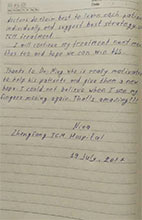 doctors do their best to serve each patient
individually and suggest best strategy
TCM treatment.
I will continue my treatment next
this too and hope we can win MS.
Thanks to Dr. May, who is really motivated
to help his patients and give them a new
hope. I could not believe when I saw my
fingers moving again. That's amazing!!!
Nina
Zhengtong TCM Hospital
29 July, 2017